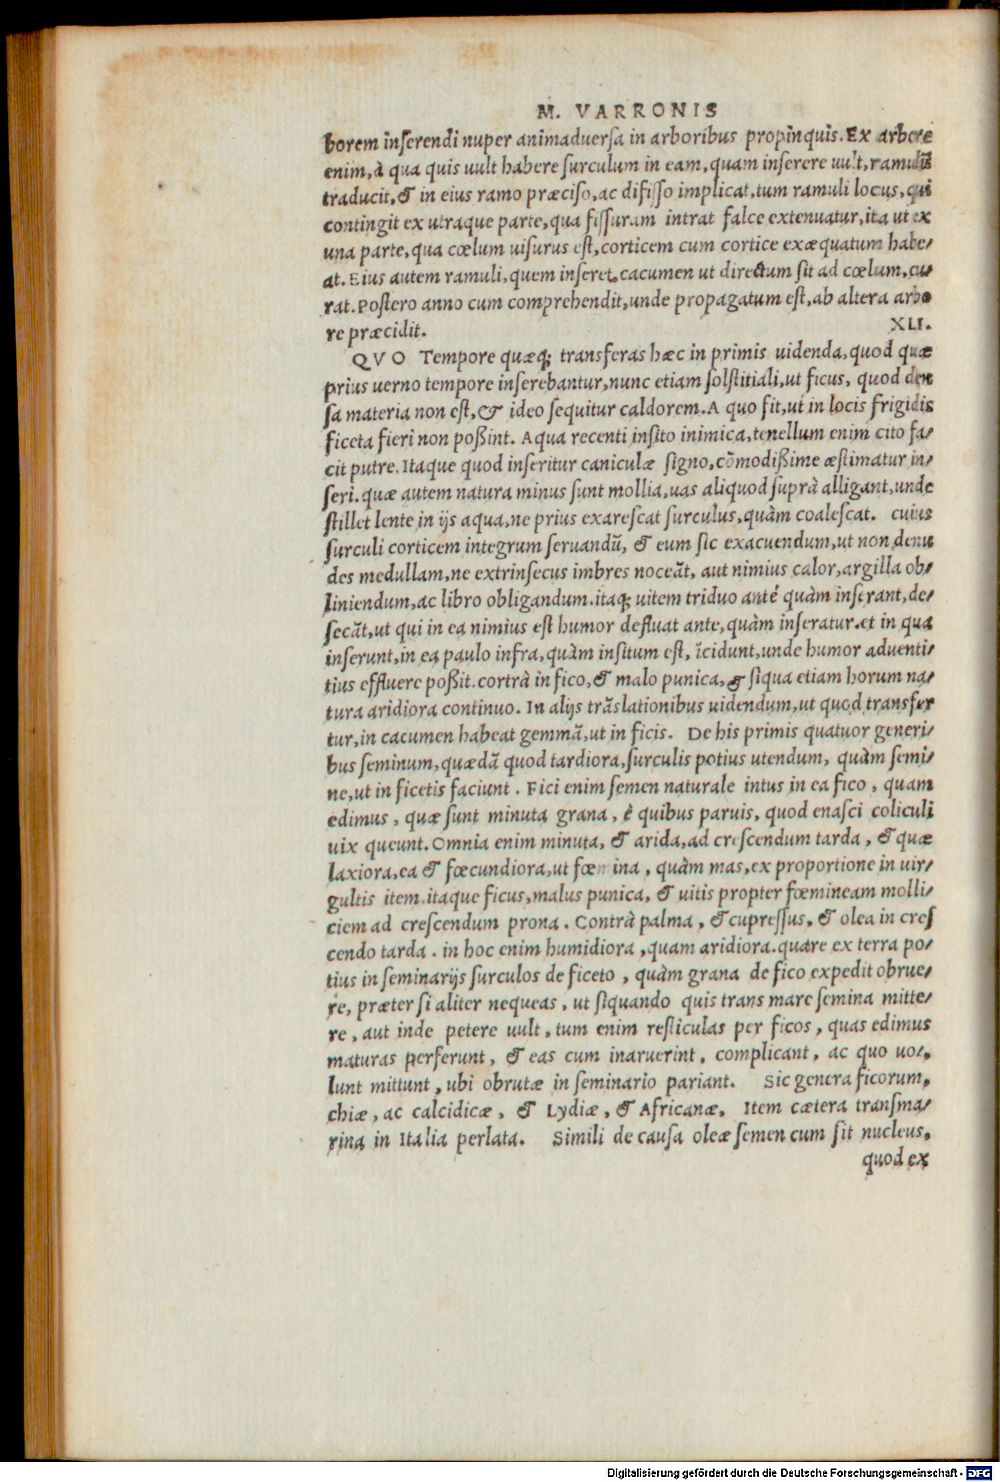 M. VARRONIS
borem inserendi nuper animaduersa in arboribus propinquis. Ex arbore
enim, à qua quis uult habere surculum in eam, quam inserere uult, ramulũ
traducit, & in eius ramo præciso, ac difisso implicat, tum ramuli locus, qui
contingit ex utraque parte, qua fissuram intrat falce extenuatur, ita ut ex
una parte, qua cœlum uisurus est, corticem cum cortice exæquatum habe/
at. Eius autem ramuli, quem inseret, cacumen ut directum sit ad cœlum, cu/
rat. Postero anno cum comprehendit, unde propagatum est, ab altera arbo
re præcidit.
XLI.
QVO Tempore quæq; transferas hæc in primis uidenda, quod quæ
prius uerno tempore inserebantur, nunc etiam solstitiali, ut ficus, quod den
sa materia non est, & ideo sequitur caldorem. A quo fit, ut in locis frigidis
ficeta fieri non poßint. Aqua recenti insito inimica, tenellum enim cito fa/
cit putre. Itaque quod inseritur caniculæ signo, cõmodißime æstimatur in/
seri. quæ autem natura minus sunt mollia, uas aliquod suprà alligant, unde
stillet lente in ijs aqua, ne prius exarescat surculus, quàm coalescat. cuius
surculi corticem integrum seruandũ, & eum sic exacuendum, ut non denu
des medullam, ne extrinsecus imbres noceãt, aut nimius calor, argilla ob/
liniendum, ac libro obligandum. itaq; uitem triduo antè quàm inserant, de/
secãt, ut qui in ea nimius est humor defluat ante, quàm inseratur. et in qua
inserunt, in ea paulo infra, quàm insitum est, ĩcidunt, unde humor aduenti/
tius effluere poßit. cortrà in fico, & malo punica, & siqua etiam horum na/
tura aridiora continuo. In alijs trãslationibus uidendum, ut quod transfer
tur, in cacumen habeat gemmã, ut in ficis. De his primis quatuor generi/
bus seminum, quædã quod tardiora, surculis potius utendum, quàm semi/
ne, ut in ficetis faciunt. Fici enim semen naturale intus in ea fico, quam
edimus, quæ sunt minuta grana, è quibus paruis, quod enasci coliculi
uix queunt. Omnia enim minuta, & arida, ad crescendum tarda, & quæ
laxiora, ea & fœcundiora, ut fœmina, quàm mas, ex proportione in uir/
gultis item. itaque ficus, malus punica, & uitis propter fœmineam molli/
ciem ad crescendum prona. Contrà palma, & cupressus, & olea in cres
cendo tarda. in hoc enim humidiora, quam aridiora. quare ex terra po/
tius in seminarijs surculos de ficeto, quàm grana de fico expedit obrue/
re, præter si aliter nequeas, ut siquando quis trans mare semina mitte/
re, aut inde petere uult, tum enim resticulas per ficos, quas edimus
maturas perferunt, & eas cum inaruerint, complicant, ac quo uo/
lunt mittunt, ubi obrutæ in seminario pariant. Sic genera ficorum,
chiæ, ac calcidicæ, & Lydiæ, & Africanæ, Item cætera transma/
rina in Italia perlata. Simili de causa oleæ semen cum sit nucleus,
quod ex
Digitalisierung gefördert durch die Deutsche Forschungsgemeinschaft - DFG